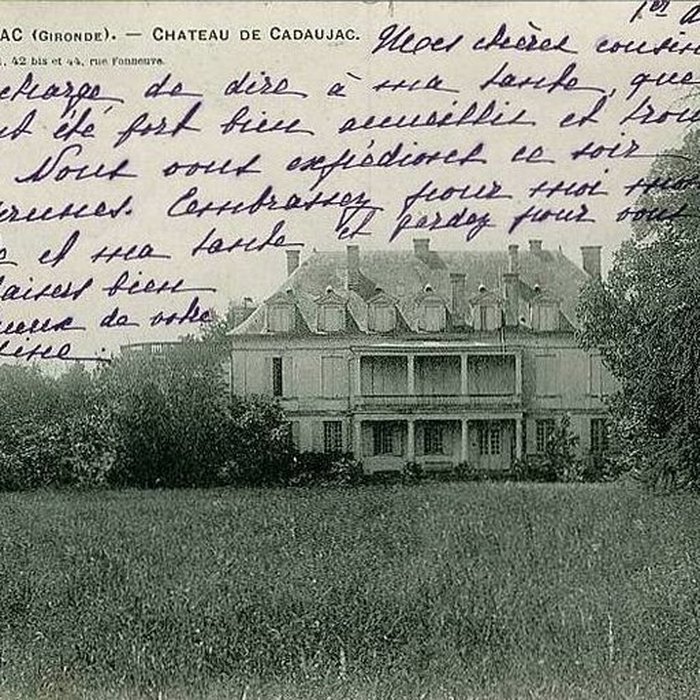 1er a
AC (GIRONDE). — CHATEAU DE CADAUJAC. Mes chères cousin
, 42 bis et 44, rue Fonneuve.
charge de dire à ma tante, que
nt été fort bien accueillis et trou
Nous vous expédions ce soir
prunes. Embrassez pour moi mon
e et ma tante et gardez pour vous
aisers bien
de votre
ine.